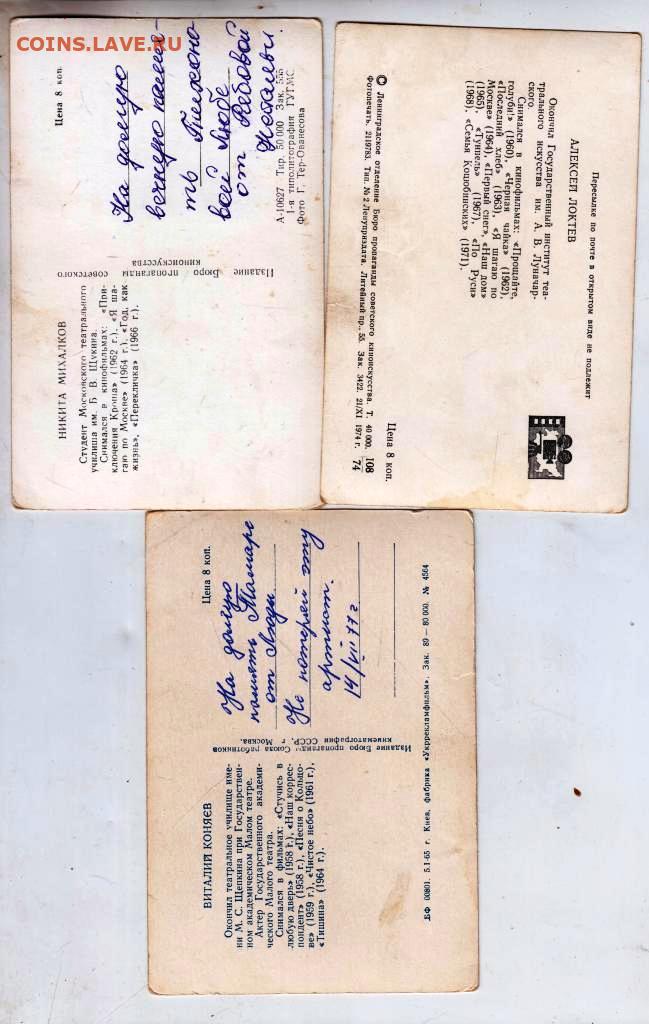 COINS.LAVE.RU
НИКИТА МИХАЛКОВ
Студент Московского театрального
училища им. Б. В. Щукина.
Снимался в кинофильмах: «При-
ключения Кроша» (1962 г.), «Я ша-
гаю по Москве» (1964 г.), «Год, как
жизнь», «Перекличка» (1966 г.),
Издание Бюро пропаганды советского
киноискусства
Цена 8 коп.
На долгую
вечную памя-
ть Тихоно
вой Любе
от Рябовой
Натальи.
А-10627 Тир. 50 000 Зак. 555
1-я типолитография ГУГМС
Фото Г. Тер-Ованесова
Пересылке по почте в открытом виде не подлежит
АЛЕКСЕЙ ЛОКТЕВ
Окончил Государственный институт теа-
трального искусства им. А. В. Луначар-
ского.
Снимался в кинофильмах: «Прощайте,
голуби!» (1960), «Черная чайка» (1962),
«Последний хлеб» (1963), «Я шагаю по
Москве» (1964), «Первый снег», «Наш дом»
(1965), «Туннель» (1967), «По Руси»
(1968), «Семья Коцюбинских» (1971).
Цена 8 коп.
© Ленинградское отделение Бюро пропаганды советского киноискусства. Т. 40 000. 108
Фотопечать. 2119783. Тип. № 2 Ленуприздата Литейный пр., 55. Зак. 3422. 21/XI 1974 г. 74
ВИТАЛИЙ КОНЯЕВ
Окончил театральное училище име-
ни М. С. Щепкина при Государствен-
ном академическом Малом театре.
Актер Государственного академи-
ческого Малого театра.
Снимался в фильмах: «Стучись в
любую дверь» (1958 г.), «Наш коррес-
пондент» (1958 г.), «Песня о Кольцо-
ве» (1959 г.), «Чистое небо» (1961 г.),
«Тишина» (1964 г.).
Издание Бюро пропаганды Союза работников
кинематографии СССР. г. Москва.
Цена 8 коп.
На долгую
память Тамаре
от Люды
Не потеряй эту
артист.
14/VII 77 г
БФ 00801. 5.I-65 г. Киев, фабрика «Укррекламфильм». Зак. 89 — 80 000. № 4564